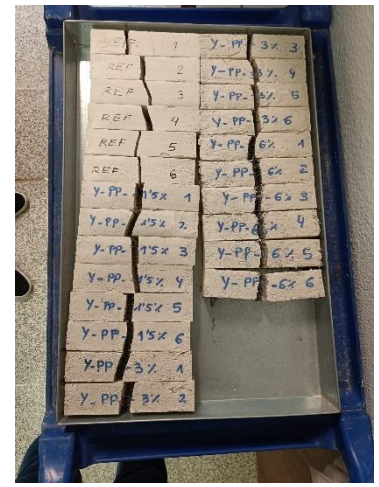 REF 1
REF 2
REF 3
REF 4
REF 5
REF 6
Y-PP-1'5% 1
Y-PP-1'5% 2
Y-PP-1'5% 3
Y-PP-1'5% 4
Y-PP-1'5% 5
Y-PP-1'5% 6
Y-PP-3% 1
Y-PP-3% 2
Y-PP-3% 3
Y-PP-3% 4
Y-PP-3% 5
Y-PP-3% 6
Y-PP-6% 1
Y-PP-6% 2
Y-PP-6% 3
Y-PP-6% 4
Y-PP-6% 5
Y-PP-6% 6